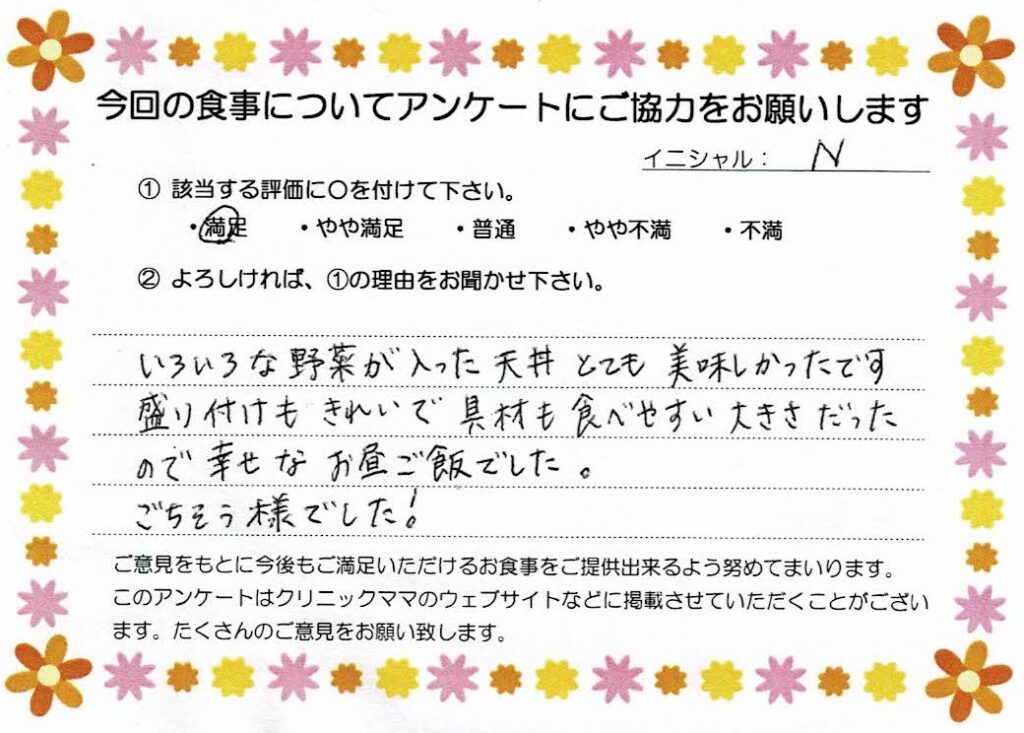 今回の食事についてアンケートにご協力をお願いします
イニシャル： N
① 該当する評価に〇を付けて下さい。
・満足 ・やや満足 ・普通 ・やや不満 ・不満
② よろしければ、①の理由をお聞かせ下さい。
いろいろな野菜が入った天丼とても美味しかったです
盛り付けもきれいで具材も食べやすい大きさだった
ので幸せなお昼ご飯でした。
ごちそう様でした!
ご意見をもとに今後もご満足いただけるお食事をご提供出来るよう努めてまいります。
このアンケートはクリニックママのウェブサイトなどに掲載させていただくことがござい
ます。たくさんのご意見をお願い致します。